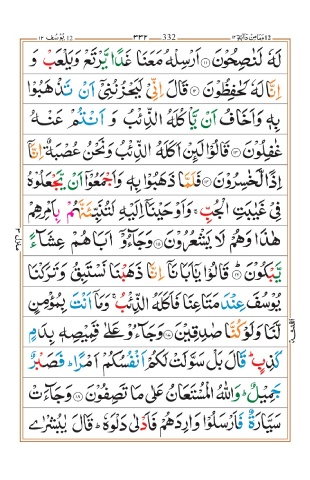 يُوْسُف ١٢ ٣٣٢ 332 وَمَا مِنْ دَآبَّةٍ ١٢
لَهٗ لَنٰصِحُوْنَ ۝١١ اَرْسِلْهُ مَعَنَا غَدًا يَّرْتَعْ وَيَلْعَبْ وَ
اِنَّا لَهٗ لَحٰفِظُوْنَ ۝١٢ قَالَ اِنِّىْ لَيَحْزُنُنِىْۤ اَنْ تَذْهَبُوْا
بِهٖ وَاَخَافُ اَنْ يَّاْكُلَهُ الذِّئْبُ وَ اَنْتُمْ عَنْهُ
غٰفِلُوْنَ ۝١٣ قَالُوْا لَئِنْ اَكَلَهُ الذِّئْبُ وَنَحْنُ عُصْبَةٌ اِنَّاۤ
اِذًا لَّخٰسِرُوْنَ ۝١٤ فَلَمَّا ذَهَبُوْا بِهٖ وَاَجْمَعُوْۤا اَنْ يَّجْعَلُوْهُ
فِىْ غَيٰبَتِ الْجُبِّ ۚ وَاَوْحَيْنَاۤ اِلَيْهِ لَتُنَبِّئَنَّهُمْ بِاَمْرِهِمْ
هٰذَا وَهُمْ لَا يَشْعُرُوْنَ ۝١٥ وَجَآءُوْۤ اَبَاهُمْ عِشَآءً
يَّبْكُوْنَ ۝١٦ قَالُوْا يٰۤاَبَانَاۤ اِنَّا ذَهَبْنَا نَسْتَبِقُ وَتَرَكْنَا
يُوْسُفَ عِنْدَ مَتَاعِنَا فَاَكَلَهُ الذِّئْبُ ۚ وَمَاۤ اَنْتَ بِمُؤْمِنٍ
لَّنَا وَلَوْ كُنَّا صٰدِقِيْنَ ۝١٧ وَجَآءُوْ عَلٰى قَمِيْصِهٖ بِدَمٍ
كَذِبٍ ؕ قَالَ بَلْ سَوَّلَتْ لَكُمْ اَنْفُسُكُمْ اَمْرًا ؕ فَصَبْرٌ
جَمِيْلٌ ؕ وَاللّٰهُ الْمُسْتَعَانُ عَلٰى مَا تَصِفُوْنَ ۝١٨ وَجَآءَتْ
سَيَّارَةٌ فَاَرْسَلُوْا وَارِدَهُمْ فَاَدْلٰى دَلْوَهٗ ؕ قَالَ يٰبُشْرٰى